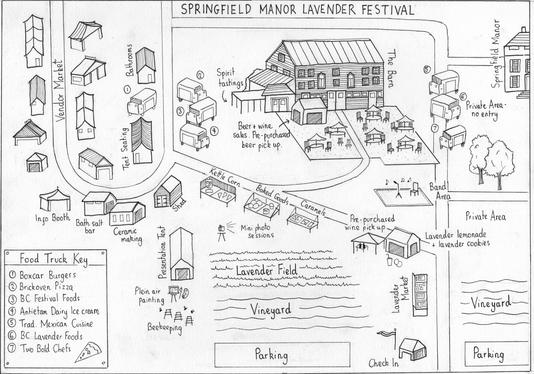 SPRINGFIELD MANOR LAVENDER FESTIVAL
Vendor Market
Bathrooms
①
Tent Seating
②
③
④
Spirit
tastings
The Barn
Beer + wine
sales. Pre-purchased
beer pick up
⑤
⑥
⑦
Springfield Manor
Private Area-
no entry
Info Booth
Bath salt
bar
Ceramic
making
Shed
Kettle Corn
Baked Goods
Caramels
Band
Area
Private Area
Mini photo
sessions
Pre-purchased
wine pick up
Lavender lemonade
+ lavender cookies
Presentation Tent
Plein air
painting
Beekeeping
Lavender Field
Vineyard
Lavender
Market
Vineyard
Parking
Check In
Parking
Food Truck Key
① Boxcar Burgers
② Brickoven Pizza
③ BC Festival Foods
④ Antietam Dairy Ice cream
⑤ Trad. Mexican Cuisine
⑥ BC Lavender Foods
⑦ Two Bold Chefs